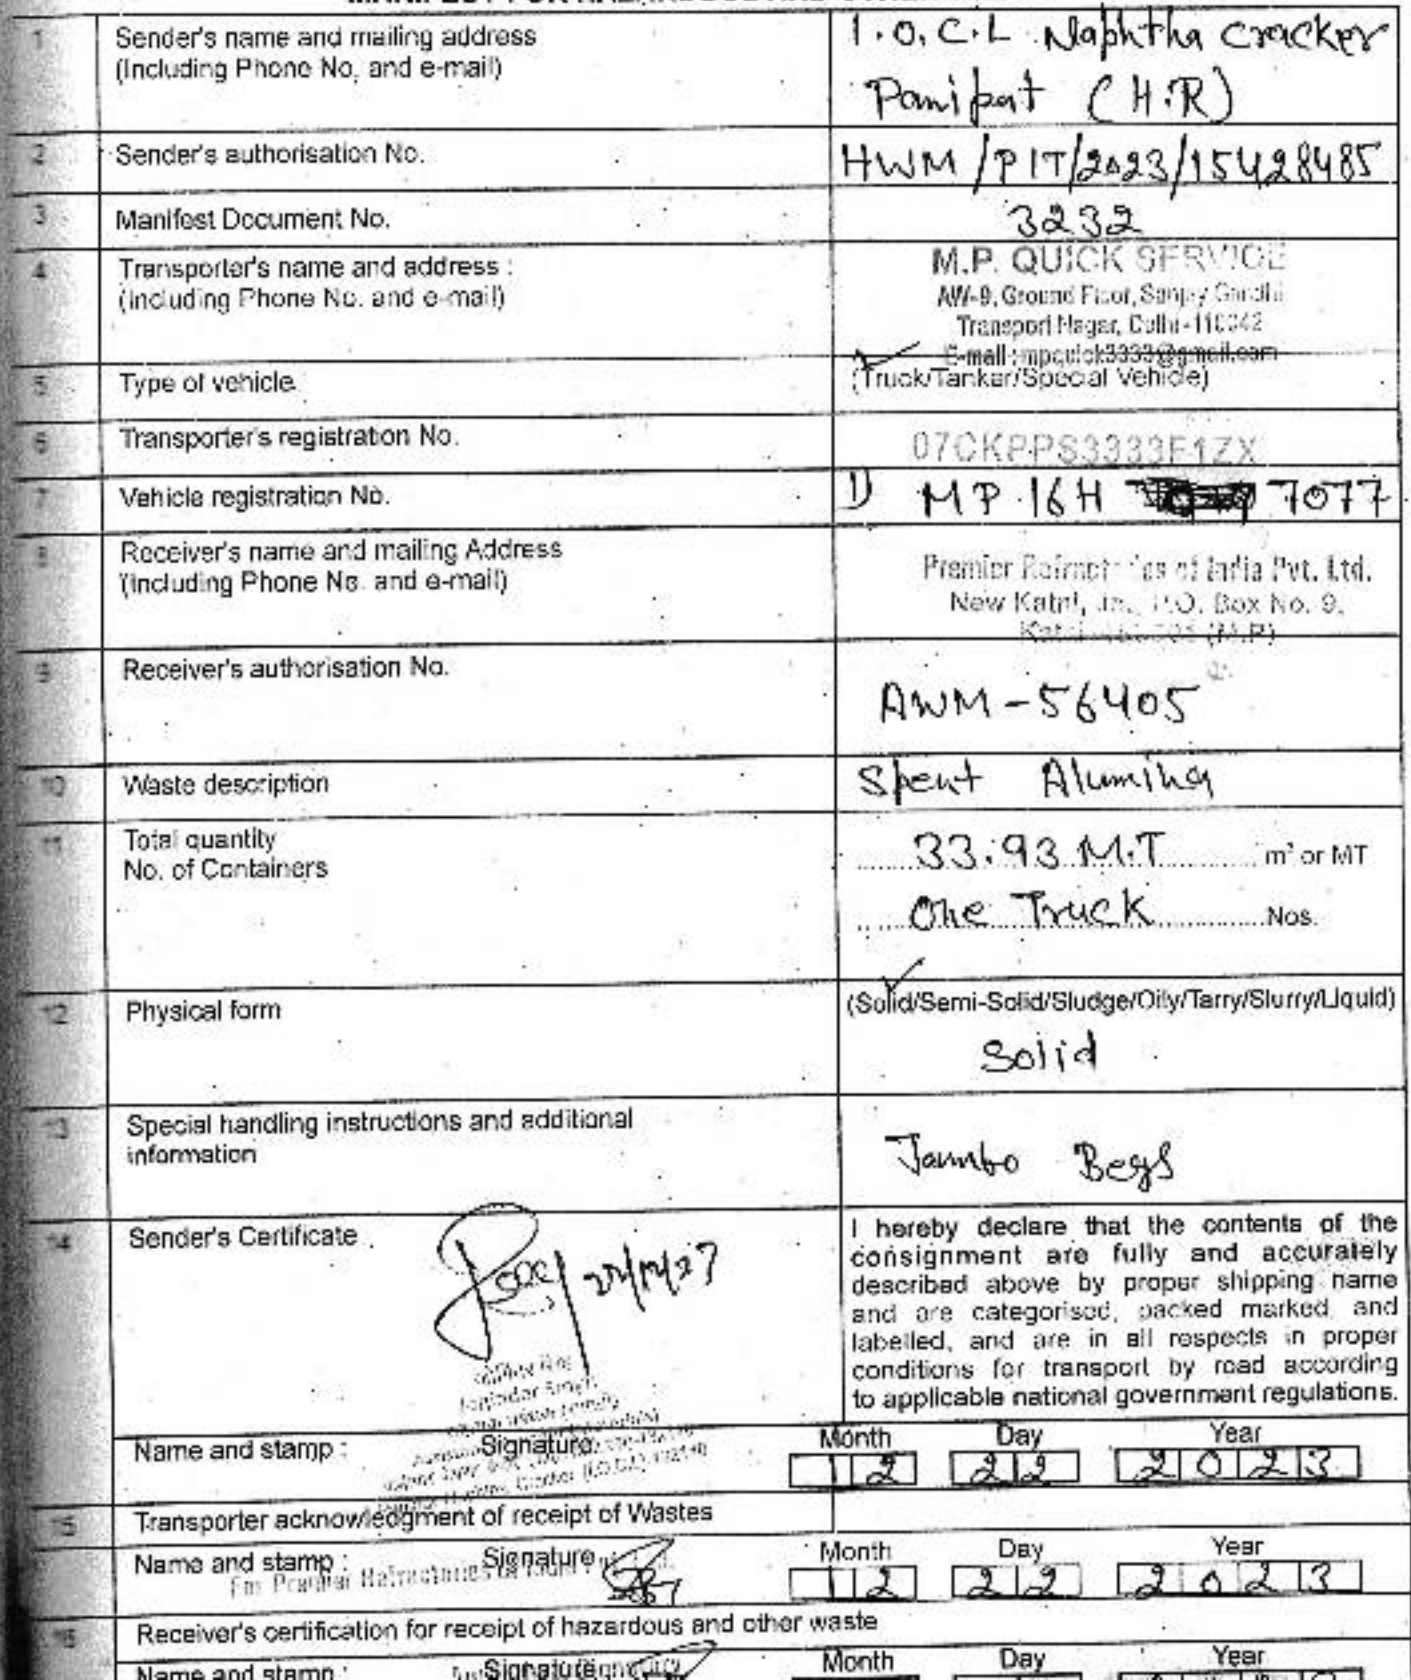 1 Sender's name and mailing address I.O.C.L Naphtha Cracker
(Including Phone No. and e-mail) Panipat (H.R)
2 Sender's authorisation No. HWM/PIT/2023/15428485
3 Manifest Document No. 3232
4 Transporter's name and address : M.P. QUICK SERVICE
(including Phone No. and e-mail) AW-9, Ground Floor, Sanjay Gandhi
Transport Nagar, Delhi-110042
E-mail : mpquick3333@gmail.com
5 Type of vehicle (Truck/Tanker/Special Vehicle)
6 Transporter's registration No. 07CKPPS3333F1ZX
7 Vehicle registration No. 1) MP.16H 7077
8 Receiver's name and mailing Address Premier Refractories of India Pvt. Ltd.
(Including Phone No. and e-mail) New Katni, Jn., P.O. Box No. 9,
Katni (M.P)
9 Receiver's authorisation No. AWM-56405
10 Waste description Spent Alumina
11 Total quantity 33.93 M.T m³ or MT
No. of Containers One Truck Nos.
12 Physical form (Solid/Semi-Solid/Sludge/Oily/Tarry/Slurry/Liquid)
Solid
13 Special handling instructions and additional
information Jambo Begs
14 Sender's Certificate I hereby declare that the contents of the
consignment are fully and accurately
described above by proper shipping name
and are categorised, packed marked, and
labelled, and are in all respects in proper
conditions for transport by road according
to applicable national government regulations.
Name and stamp : Signature Month Day Year
12 22 2023
15 Transporter acknowledgment of receipt of Wastes
Name and stamp : Signature Month Day Year
For Premier Refractories of India 12 22 2023
16 Receiver's certification for receipt of hazardous and other waste
Name and stamp : Signature Month Day Year